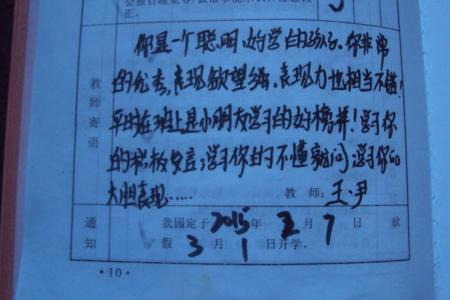 正。
你是一个聪明、好学的孩子。你非常
的优秀,表现欲望强,表现力也相当不错!
平时在班上是小朋友学习的好榜样!学习你
的积极发言;学习你的不懂就问;学习你的
大胆表现……
教师:王、尹
教师寄语
通知
我园定于2015年2月7日放
假 3月1日开学。
·10·